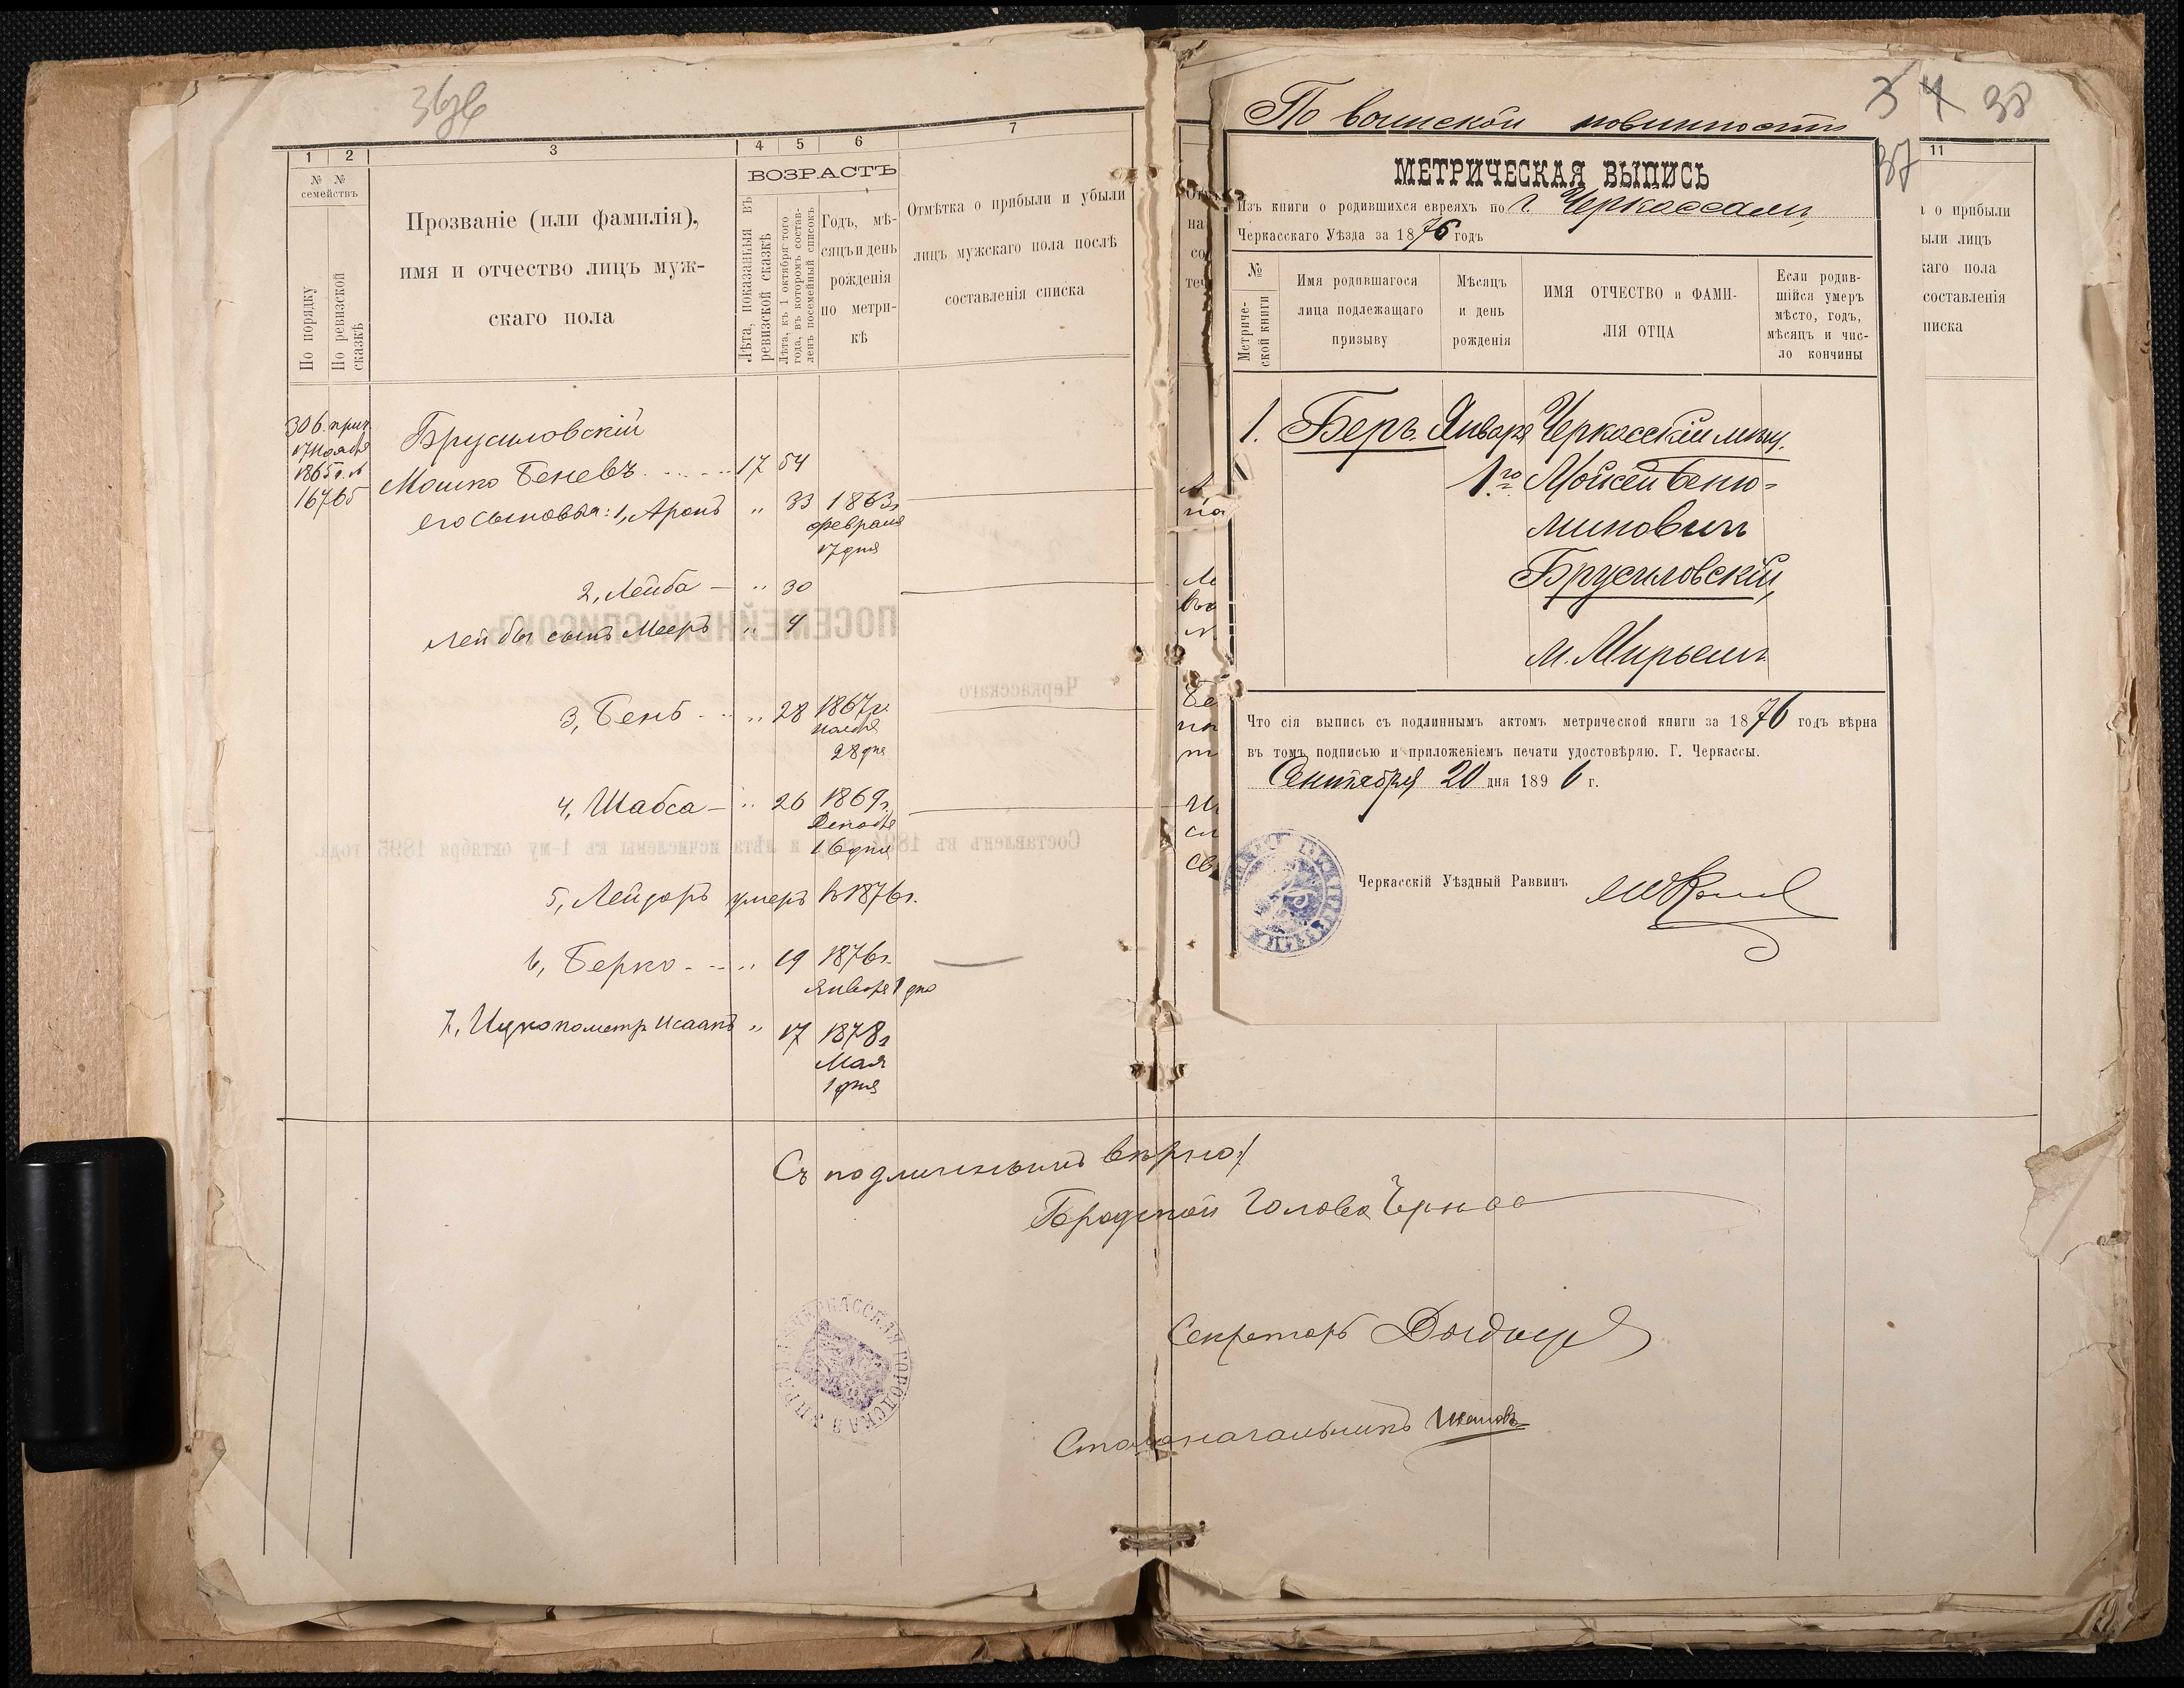 36об
1 2 3 4 5 6 7
№ № семействъ
По порядку
По ревизской сказкѣ
Прозваніе (или фамилія),
имя и отчество лицъ муж-
скаго пола
ВОЗРАСТЪ
Лѣта, показанныя въ
ревизской сказкѣ
Лѣта, къ 1 октября того
года, въ которомъ состав-
ленъ посемейный списокъ
Годъ, мѣ-
сяцъ и день
рожденія
по метри-
кѣ
Отмѣтка о прибыли и убыли
лицъ мужскаго пола послѣ
составленія списка
306. прич.
17 Ноября
1865 г. №
16765
Брусиловскій
Мошко Беневъ 17 54
его сыновья: 1, Аронъ „ 33 1863 г.
февраля
17 дня
2, Лейба — „ 30
Лейбы сынъ Мееръ „ 4
3, Бень „ 28 1867 г.
ноября
28 дня
4, Шабса — „ 26 1869 г.
Декабря
16 дня
5, Лейзоръ умеръ въ 1876 г.
6, Берко „ 19 1876 г.
Января 1 дня
7, Ицко по метр. Исаакъ „ 17 1878 г.
Мая
1 дня
Съ подлиннымъ вѣрно:
Городской Голова
Секретарь
Столоначальникъ
ЧЕРКАССКАЯ ГОРОДСКАЯ УПРАВА
34 38
37
По воинской повинности
МЕТРИЧЕСКАЯ ВЫПИСЬ
Изъ книги о родившихся евреяхъ по г. Черкассамъ
Черкасскаго Уѣзда за 1876 годъ
№
Метриче-
ской книги
Имя родившагося
лица подлежащаго
призыву
Мѣсяцъ
и день
рожденія
ИМЯ ОТЧЕСТВО и ФАМИ-
ЛІЯ ОТЦА
Если родив-
шійся умеръ
мѣсто, годъ,
мѣсяцъ и чис-
ло кончины
1. Беръ Января Черкасскій мѣщ.
1го Мойсей Беню-
миновичъ
Брусиловскій,
м. Мирьемъ
Что сія выпись съ подлиннымъ актомъ метрической книги за 1876 годъ вѣрна
въ томъ подписью и приложеніемъ печати удостовѣряю. Г. Черкассы.
Сентября 20 дня 1896 г.
Черкасскій Уѣздный Раввинъ
11
о прибыли
ыли лицъ
каго пола
составленія
писка